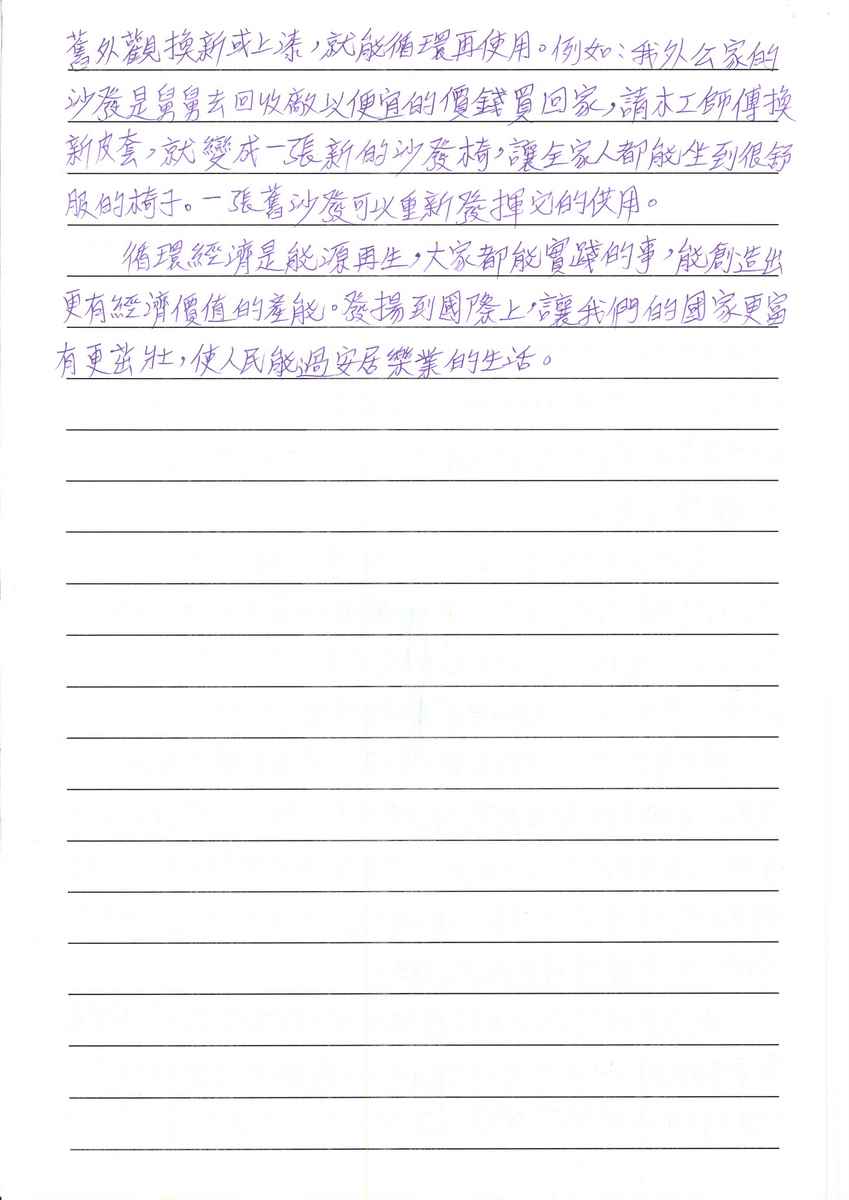 舊外觀換新或上漆，就能循環再使用。例如：我外公家的
沙發是舅舅去回收廠以便宜的價錢買回家，請木工師傅換
新皮套，就變成一張新的沙發椅，讓全家人都能坐到很舒
服的椅子。一張舊沙發可以重新發揮它的供用。
循環經濟是能源再生，大家都能實踐的事，能創造出
更有經濟價值的產能。發揚到國際上，讓我們的國家更富
有更茁壯，使人民能過安居樂業的生活。